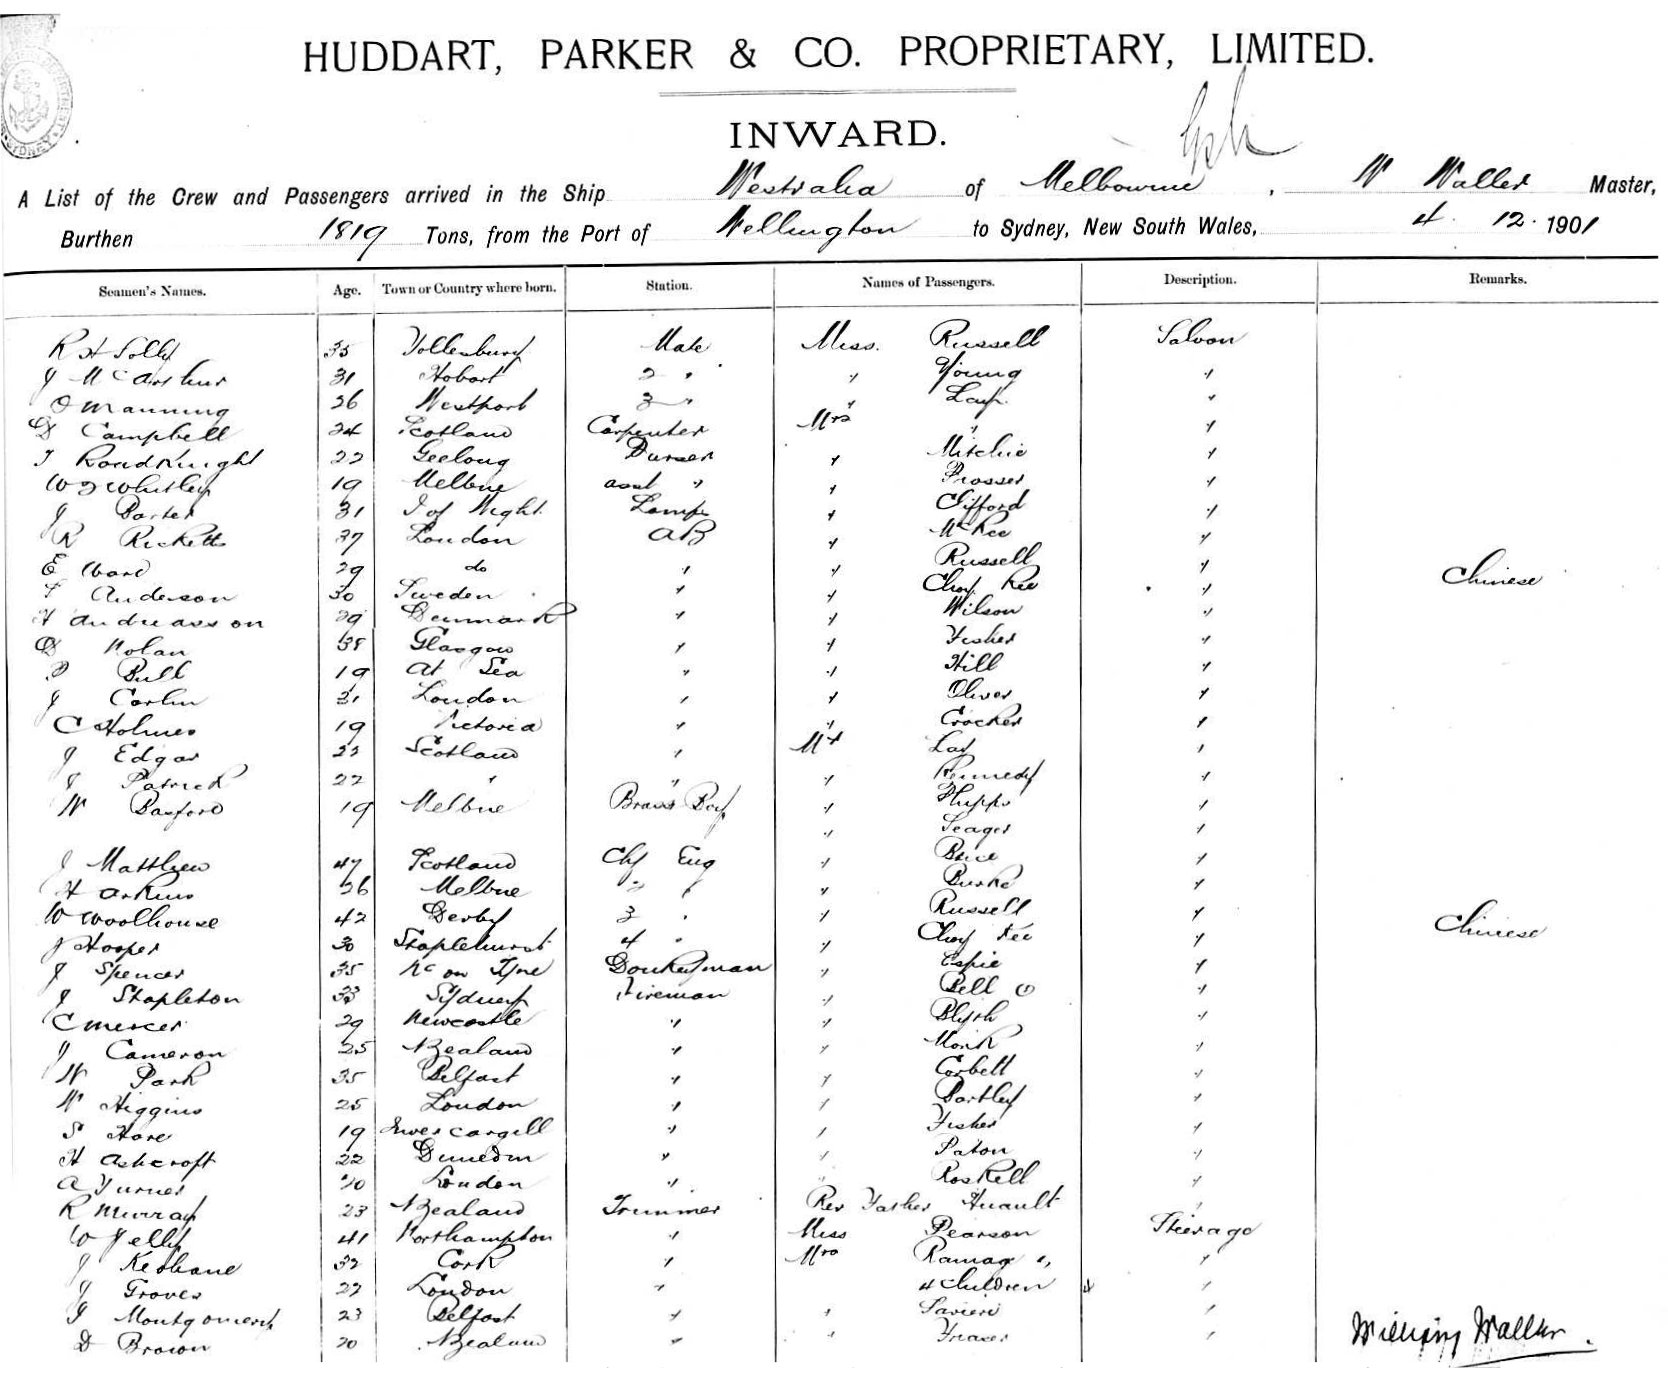 HUDDART, PARKER & CO. PROPRIETARY, LIMITED.
INWARD.
A List of the Crew and Passengers arrived in the Ship Westralia of Melbourne, W Waller Master,
Burthen 1819 Tons, from the Port of Wellington to Sydney, New South Wales, 4. 12. 1901
Seamen's Names. Age. Town or Country where born. Station. Names of Passengers. Description. Remarks.
R H Solly 35 Mate Miss. Russell Saloon
J McArthur 31 Hobart 2 " " Young "
O Manning 26 Westport 3 " " Lay "
D Campbell 24 Scotland Carpenter Mrs " "
T RoadKnight 22 Geelong Purser " Mitchie "
W J Whitley 19 Melbne asst " " Prosser "
J Porter 31 I of Wight Lamps " Gifford "
R Ricketts 37 London AB " McKee "
E Ward 29 do " " Russell "
F Anderson 30 Sweden " " Choy Kee " Chinese
H Andreasson 29 Denmark " " Wilson "
D Nolan 38 Glasgow " " Fisher "
Bull 19 At Sea " " Hill "
J Carlin 31 London " " Oliver "
C Holmes 19 Victoria " " Crocker "
J Edgar 22 Scotland " Mr Lay "
J Patrick 22 " " " Kennedy "
W Basford 19 Melbne Brass Boy " Phipps "
" Seager "
J Matthew 47 Scotland Chf Eng " Brice "
H Arkins 26 Melbne 2 " " Burke "
W Woolhouse 42 Derby 3 " " Russell "
J Hooper 30 Staplehurst 4 " " Choy Kee " Chinese
J Spencer 35 Nc on Tyne Donkeyman " Espie "
J Stapleton 33 Sydney Fireman " Bell "
C Mercer 29 Newcastle " " Blyth "
J Cameron 25 NZealand " " Monk "
W Park 35 Belfast " " Corbett "
W Higgins 25 London " " Bartley "
S Hare 19 Invercargill " " Fisher "
H Ashcroft 22 Dunedin " " Paton "
A Turner 20 London " " Roskell "
R Murray 23 NZealand Trimmer Rev Father Huault "
W Jelly 41 Northampton " Miss Pearson Steerage
J Keohane 32 Cork " Mrs Ramage "
J Groves 22 London " 4 Children 4 "
J Montgomery 23 Belfast " " Savieri "
D Brown 20 NZealand " " Fraser "
William Waller.